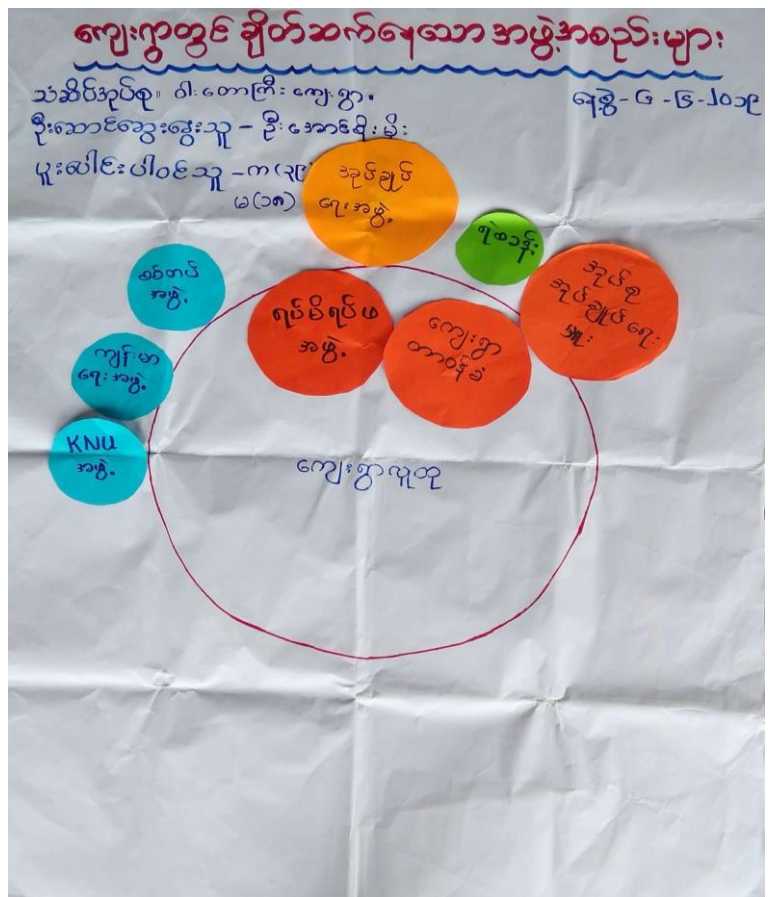 ကျေးရွာတွင် ချိတ်ဆက်နေသော အဖွဲ့အစည်းများ
သံဆိပ်အုပ်စု။ ဝါးတောကြီး ကျေးရွာ။
နေ့စွဲ - ၄ - ၆ - ၂၀၁၉
ဦးဆောင်ဆွေးနွေးသူ - ဦးအောင်စိုးမိုး
ပူးပေါင်းပါဝင်သူ - က (၃၉)
မ (၁၈)
အုပ်ချုပ်
ရေးအဖွဲ့
ရဲစခန်း
အုပ်စု
အုပ်ချုပ်ရေး
မှူး
စစ်တပ်
အဖွဲ့
ရပ်မိရပ်ဖ
အဖွဲ့
ကျေးရွာ
တာဝန်ခံ
ကျန်းမာ
ရေးအဖွဲ့
KNU
အဖွဲ့
ကျေးရွာလူထု